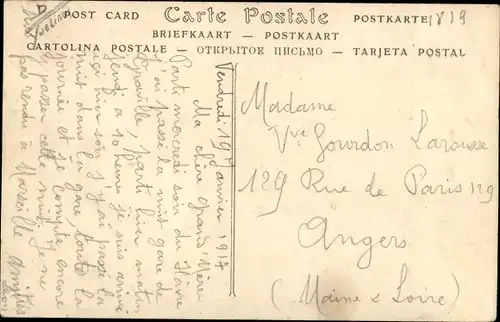 POST CARD Carte Postale POSTKARTE 1819
BRIEFKAART — POSTKAART
CARTOLINA POSTALE — ОТКРЫТОЕ ПИСЬМО — TARJETA POSTAL
Vendredi 19 Janvier 1917
Ma chère Grand'Mère
Parti mercredi soir du Hâvre
j'ai passé la nuit gare de
Graville, parti hier matin
Jeudi à 10 heures je suis arrivé
ici hier soir j'ai passé la
nuit dans la gare, toute la
journée et je compte encore
y passer cette nuit. Je ne
pas rendu à Marseille amitiés
Léon
Madame
Vve Gourdon Larousse
129 Rue de Paris 129
Angers
(Maine & Loire)